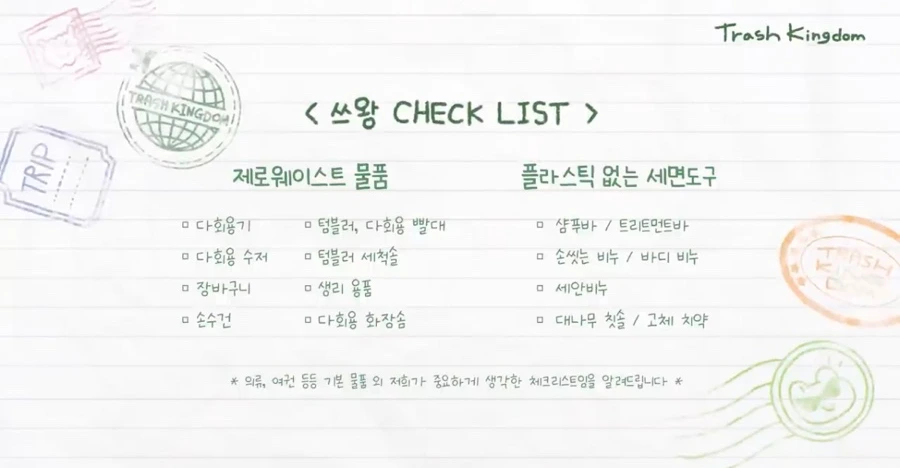 Trash Kingdom
TRASH KINGDOM
TRIP
< 쓰왕 CHECK LIST >
제로웨이스트 물품
다회용기
다회용 수저
장바구니
손수건
텀블러, 다회용 빨대
텀블러 세척솔
생리 용품
다회용 화장솜
플라스틱 없는 세면도구
샴푸바 / 트리트먼트바
손씻는 비누 / 바디 비누
세안비누
대나무 칫솔 / 고체 치약
* 의류, 여권 등등 기본 물품 외 저희가 중요하게 생각한 체크리스트임을 알려드립니다 *
TRASH